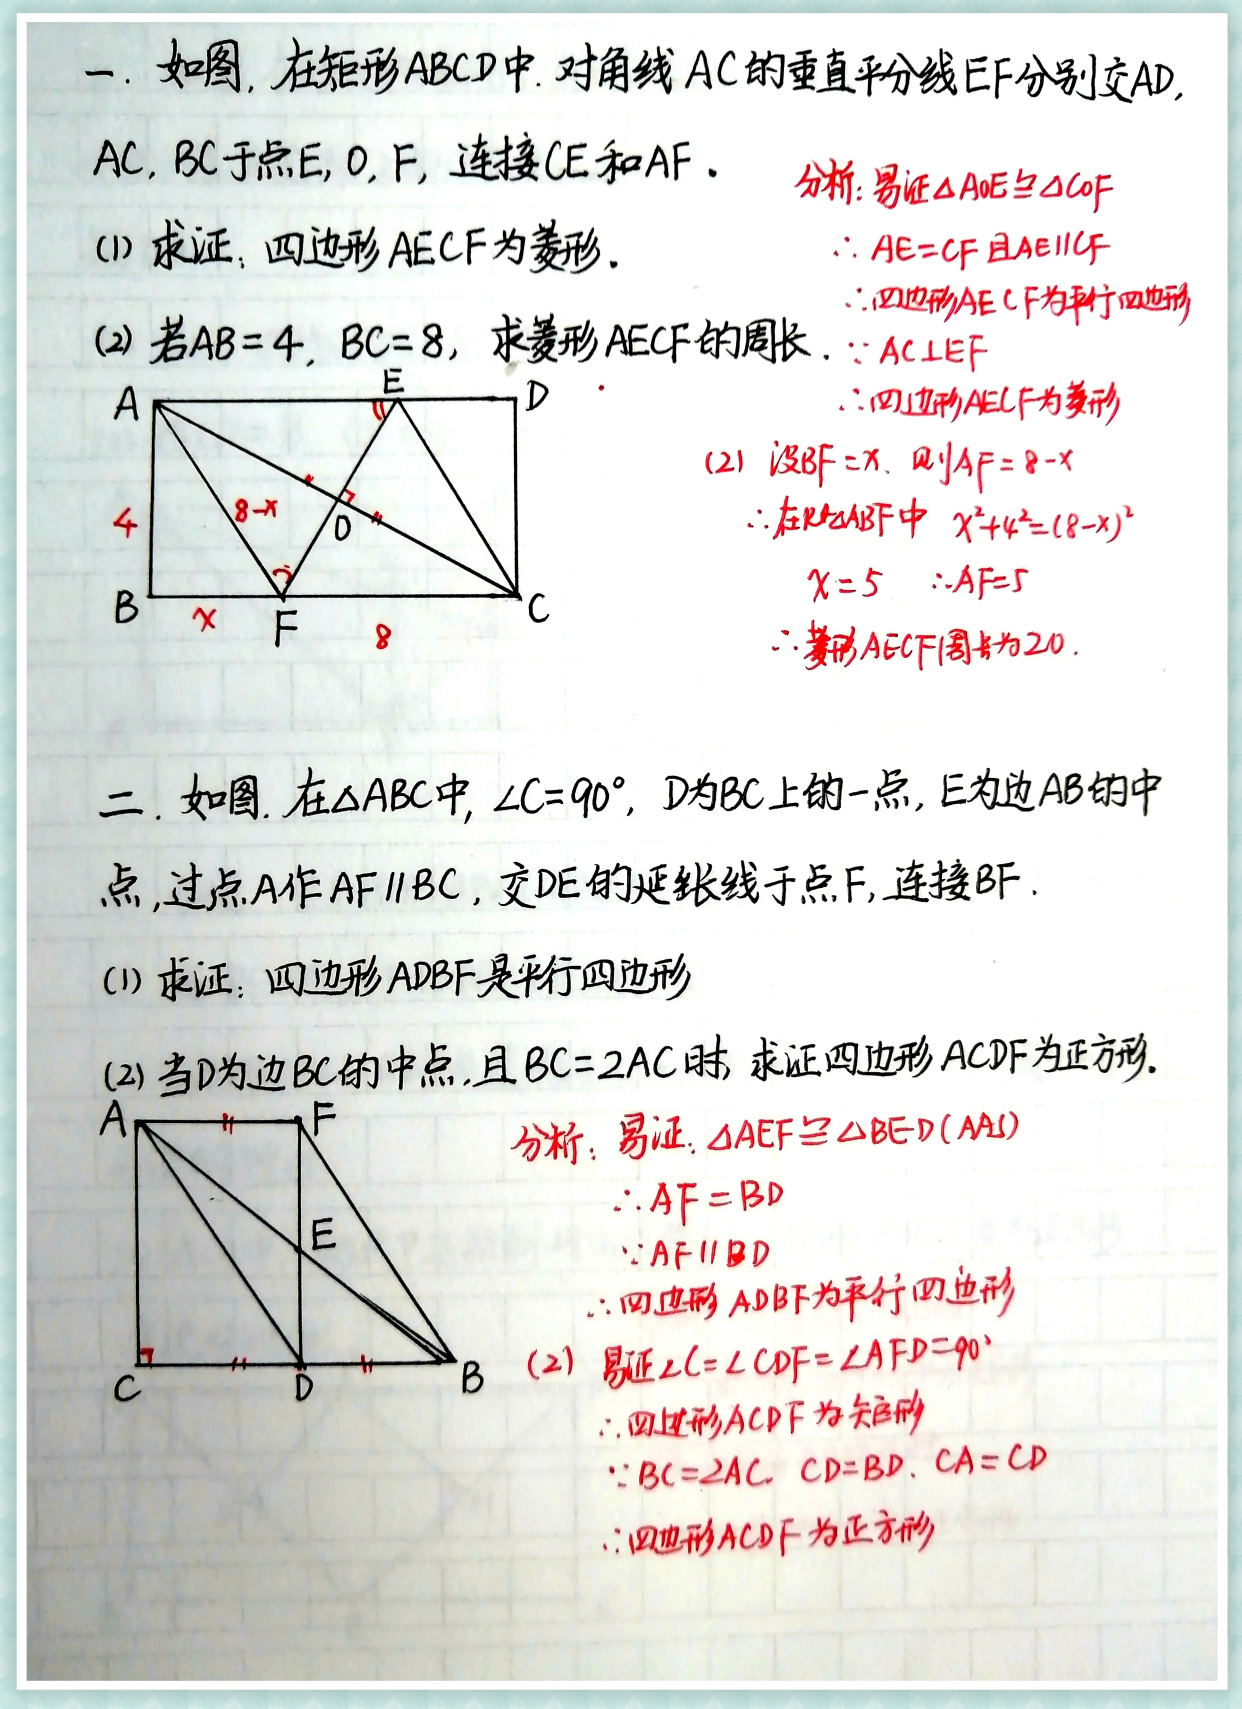 一. 如图, 在矩形ABCD中. 对角线AC的垂直平分线EF分别交AD,
AC, BC于点E, O, F, 连接CE和AF.
(1) 求证: 四边形AECF为菱形.
(2) 若AB=4, BC=8, 求菱形AECF的周长.
分析: 易证△AOE≌△COF
∴ AE=CF 且AE∥CF
∴四边形AECF为平行四边形
∵ AC⊥EF
∴四边形AECF为菱形
(2) 设BF=x, 则AF=8-x
∴在Rt△ABF中 x²+4²=(8-x)²
x=5 ∴AF=5
∴菱形AECF周长为20.
A E D
8-x
4 O
B x F 8 C
二. 如图. 在△ABC中, ∠C=90°, D为BC上的一点, E为边AB的中
点, 过点A作AF∥BC, 交DE的延长线于点F, 连接BF.
(1) 求证: 四边形ADBF是平行四边形
(2) 当D为边BC的中点, 且BC=2AC时, 求证四边形ACDF为正方形.
A F
E
C D B
分析: 易证: △AEF≌△BED(AAS)
∴AF=BD
∵AF∥BD
∴四边形ADBF为平行四边形
(2) 易证∠C=∠CDF=∠AFD=90°
∴四边形ACDF为矩形
∵BC=2AC. CD=BD. CA=CD
∴四边形ACDF为正方形